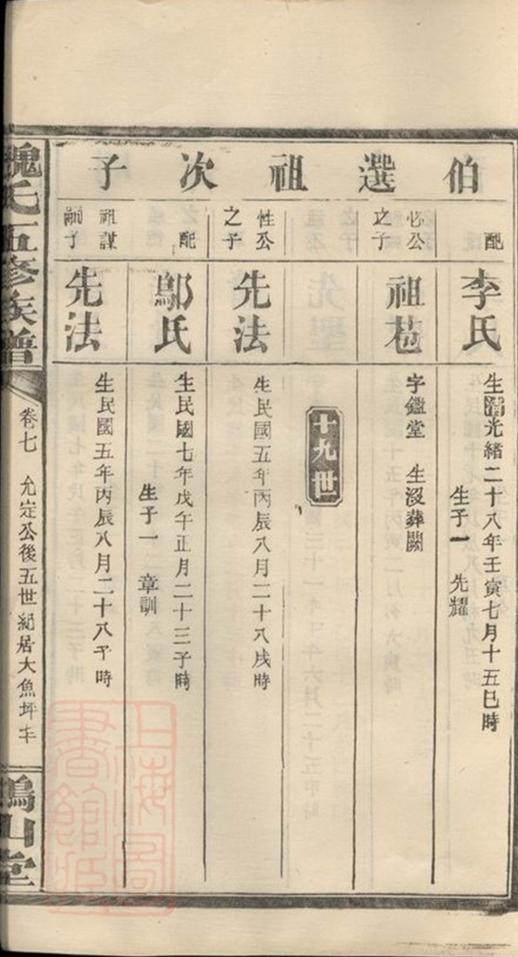 伯選祖次子
配
李氏
生清光緒二十八年壬寅七月十五巳時
生子一 先耀
必公之子
祖苞
字鑑堂 生沒葬闕
十九世
性公之子
先法
生民國五年丙辰八月二十八戌時
配
鄔氏
生民國七年戊午正月二十三子時
生子一 章訓
祖謀嗣子
先法
生民國五年丙辰八月二十八午時
魏氏五修族譜
卷七 允定公後五世紀居大魚坪
鳴山堂
上海圖書館